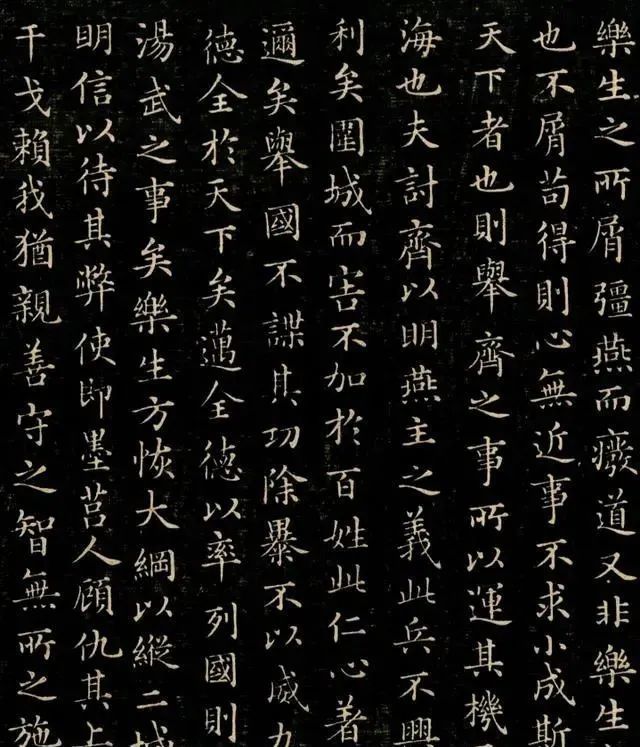 樂生之所屑彊燕而癈道又非樂生
也不屑苟得則心無近事不求小成斯
天下者也則舉齊之事所以運其機
海也夫討齊以明燕主之義此兵不興
利矣圍城而害不加於百姓此仁心著
邇矣舉國不謀其功除暴不以威力
德全於天下矣邁全德以率列國則
湯武之事矣樂生方恢大綱以縱二城
明信以待其弊使即墨莒人顧仇其上
干戈賴我猶親善守之智無所之施